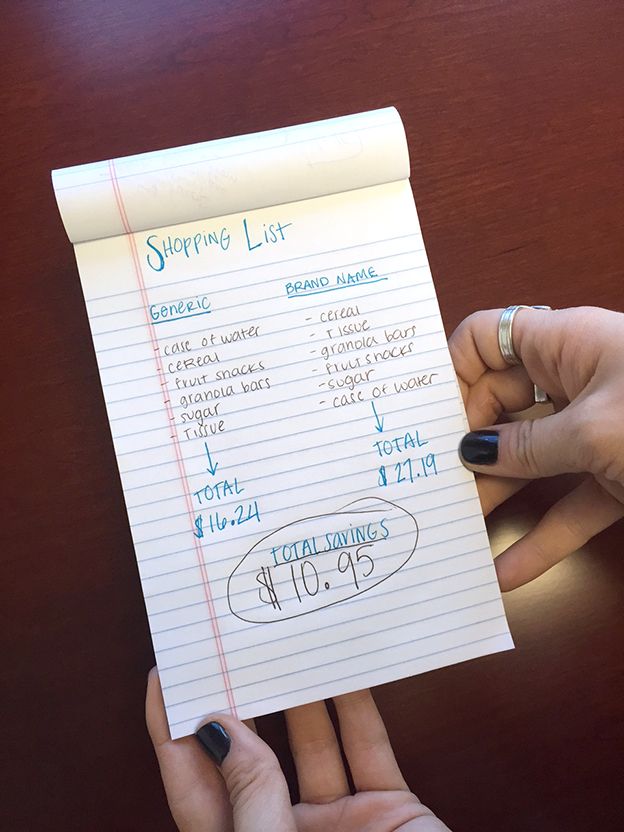 Shopping List
Generic
- case of water
- cereal
- fruit snacks
- granola bars
- sugar
- Tissue
TOTAL
$16.24
BRAND NAME
- cereal
- Tissue
- granola bars
- fruit snacks
- sugar
- case of water
TOTAL
$27.19
TOTAL SAVINGS
$10.95